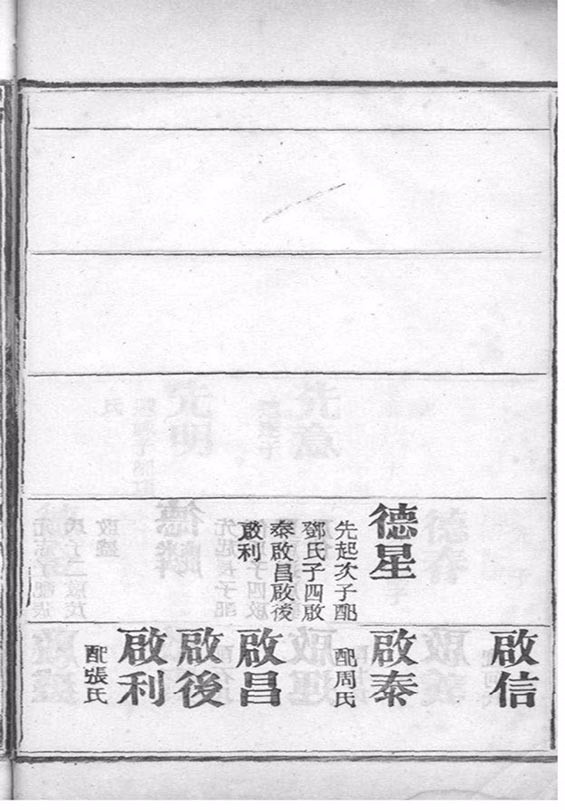 德星
先起次子配
鄧氏子四啟
泰啟昌啟後
啟利
啟信
啟泰
配周氏
啟昌
啟後
啟利
配張氏